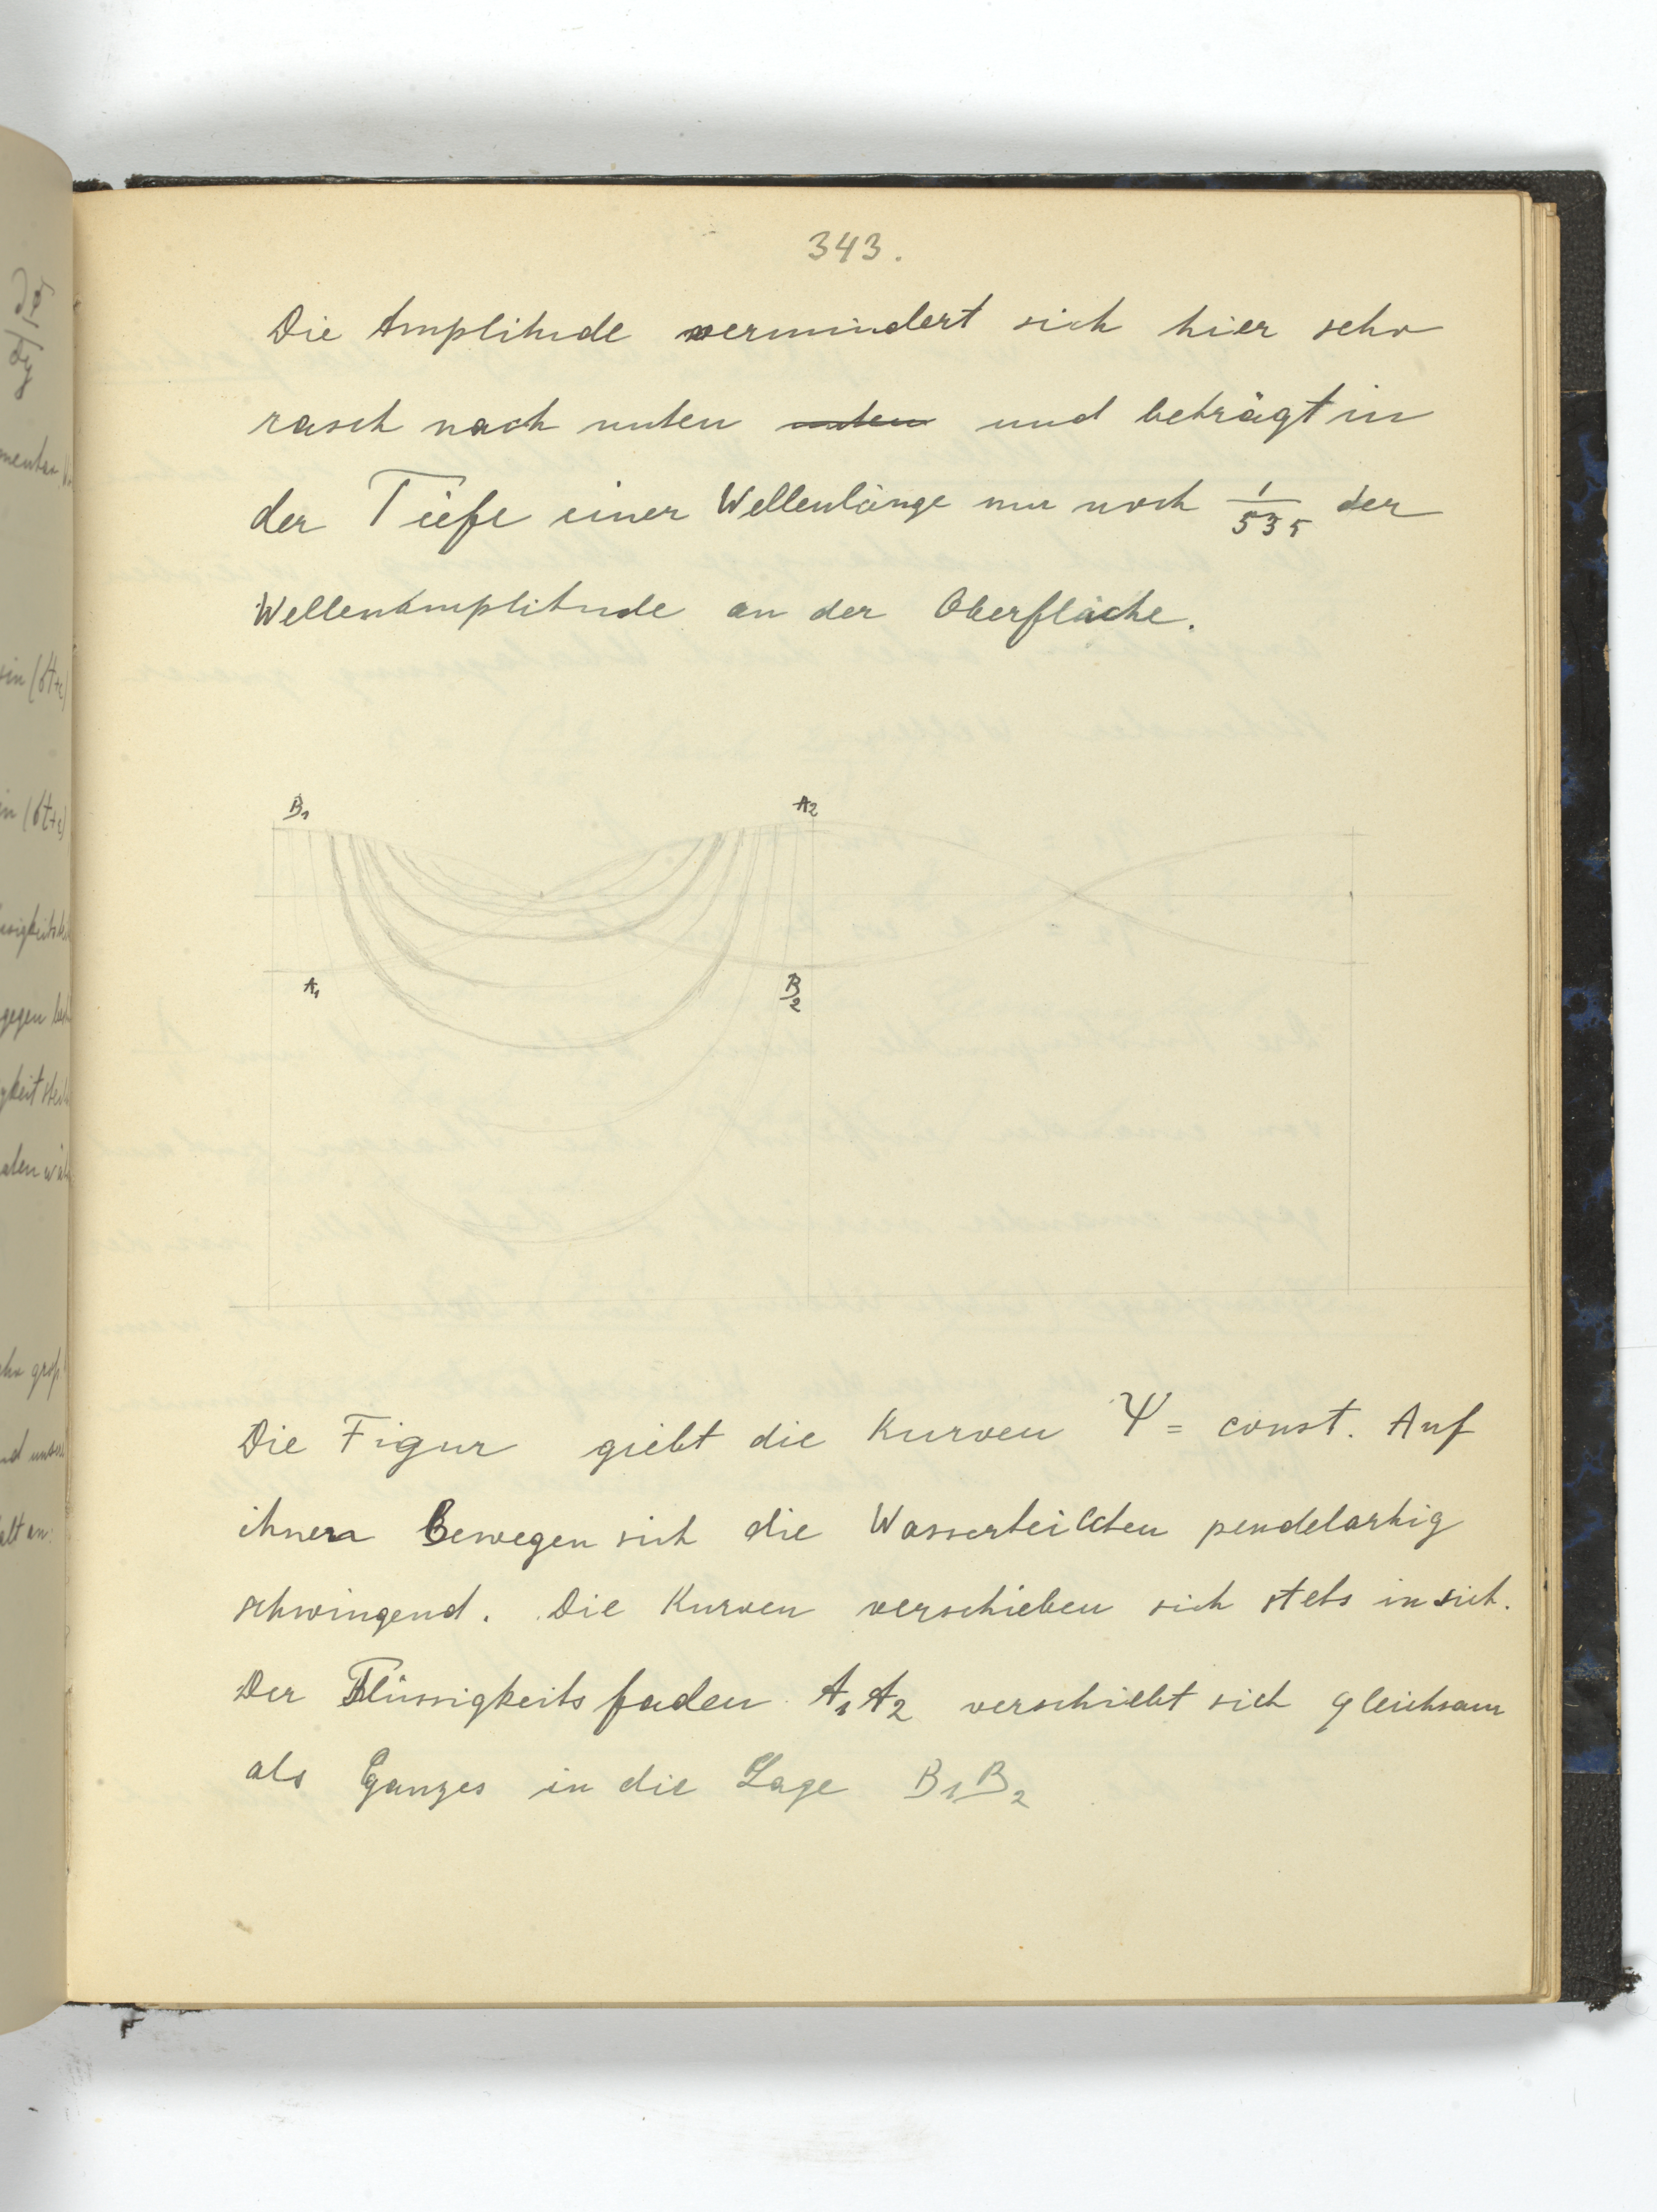 343.
Die Amplitude vermindert sich hier sehr
rasch nach unten unten und beträgt in
der Tiefe einer Wellenlänge nur noch 1/535 der
Wellenamplitude an der Oberfläche.
B₁ A₂
A₁ B₂
Die Figur giebt die Kurven Ψ = const. Auf
ihnen Bewegen sich die Wasserteilchen pendelartig
schwingend. Die Kurven verschieben sich stets in sich.
Der Flüssigkeitsfaden A₁A₂ verschiebt sich gleichsam
als Ganzes in die Lage B₁B₂